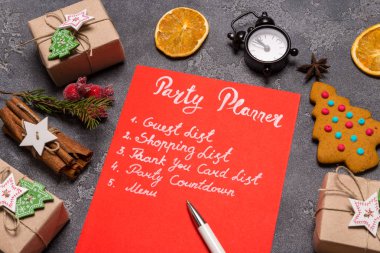 Party Planner
1. Guest List
2. Shopping List
3. Thank You Card List
4. Party Countdown
5. Menu